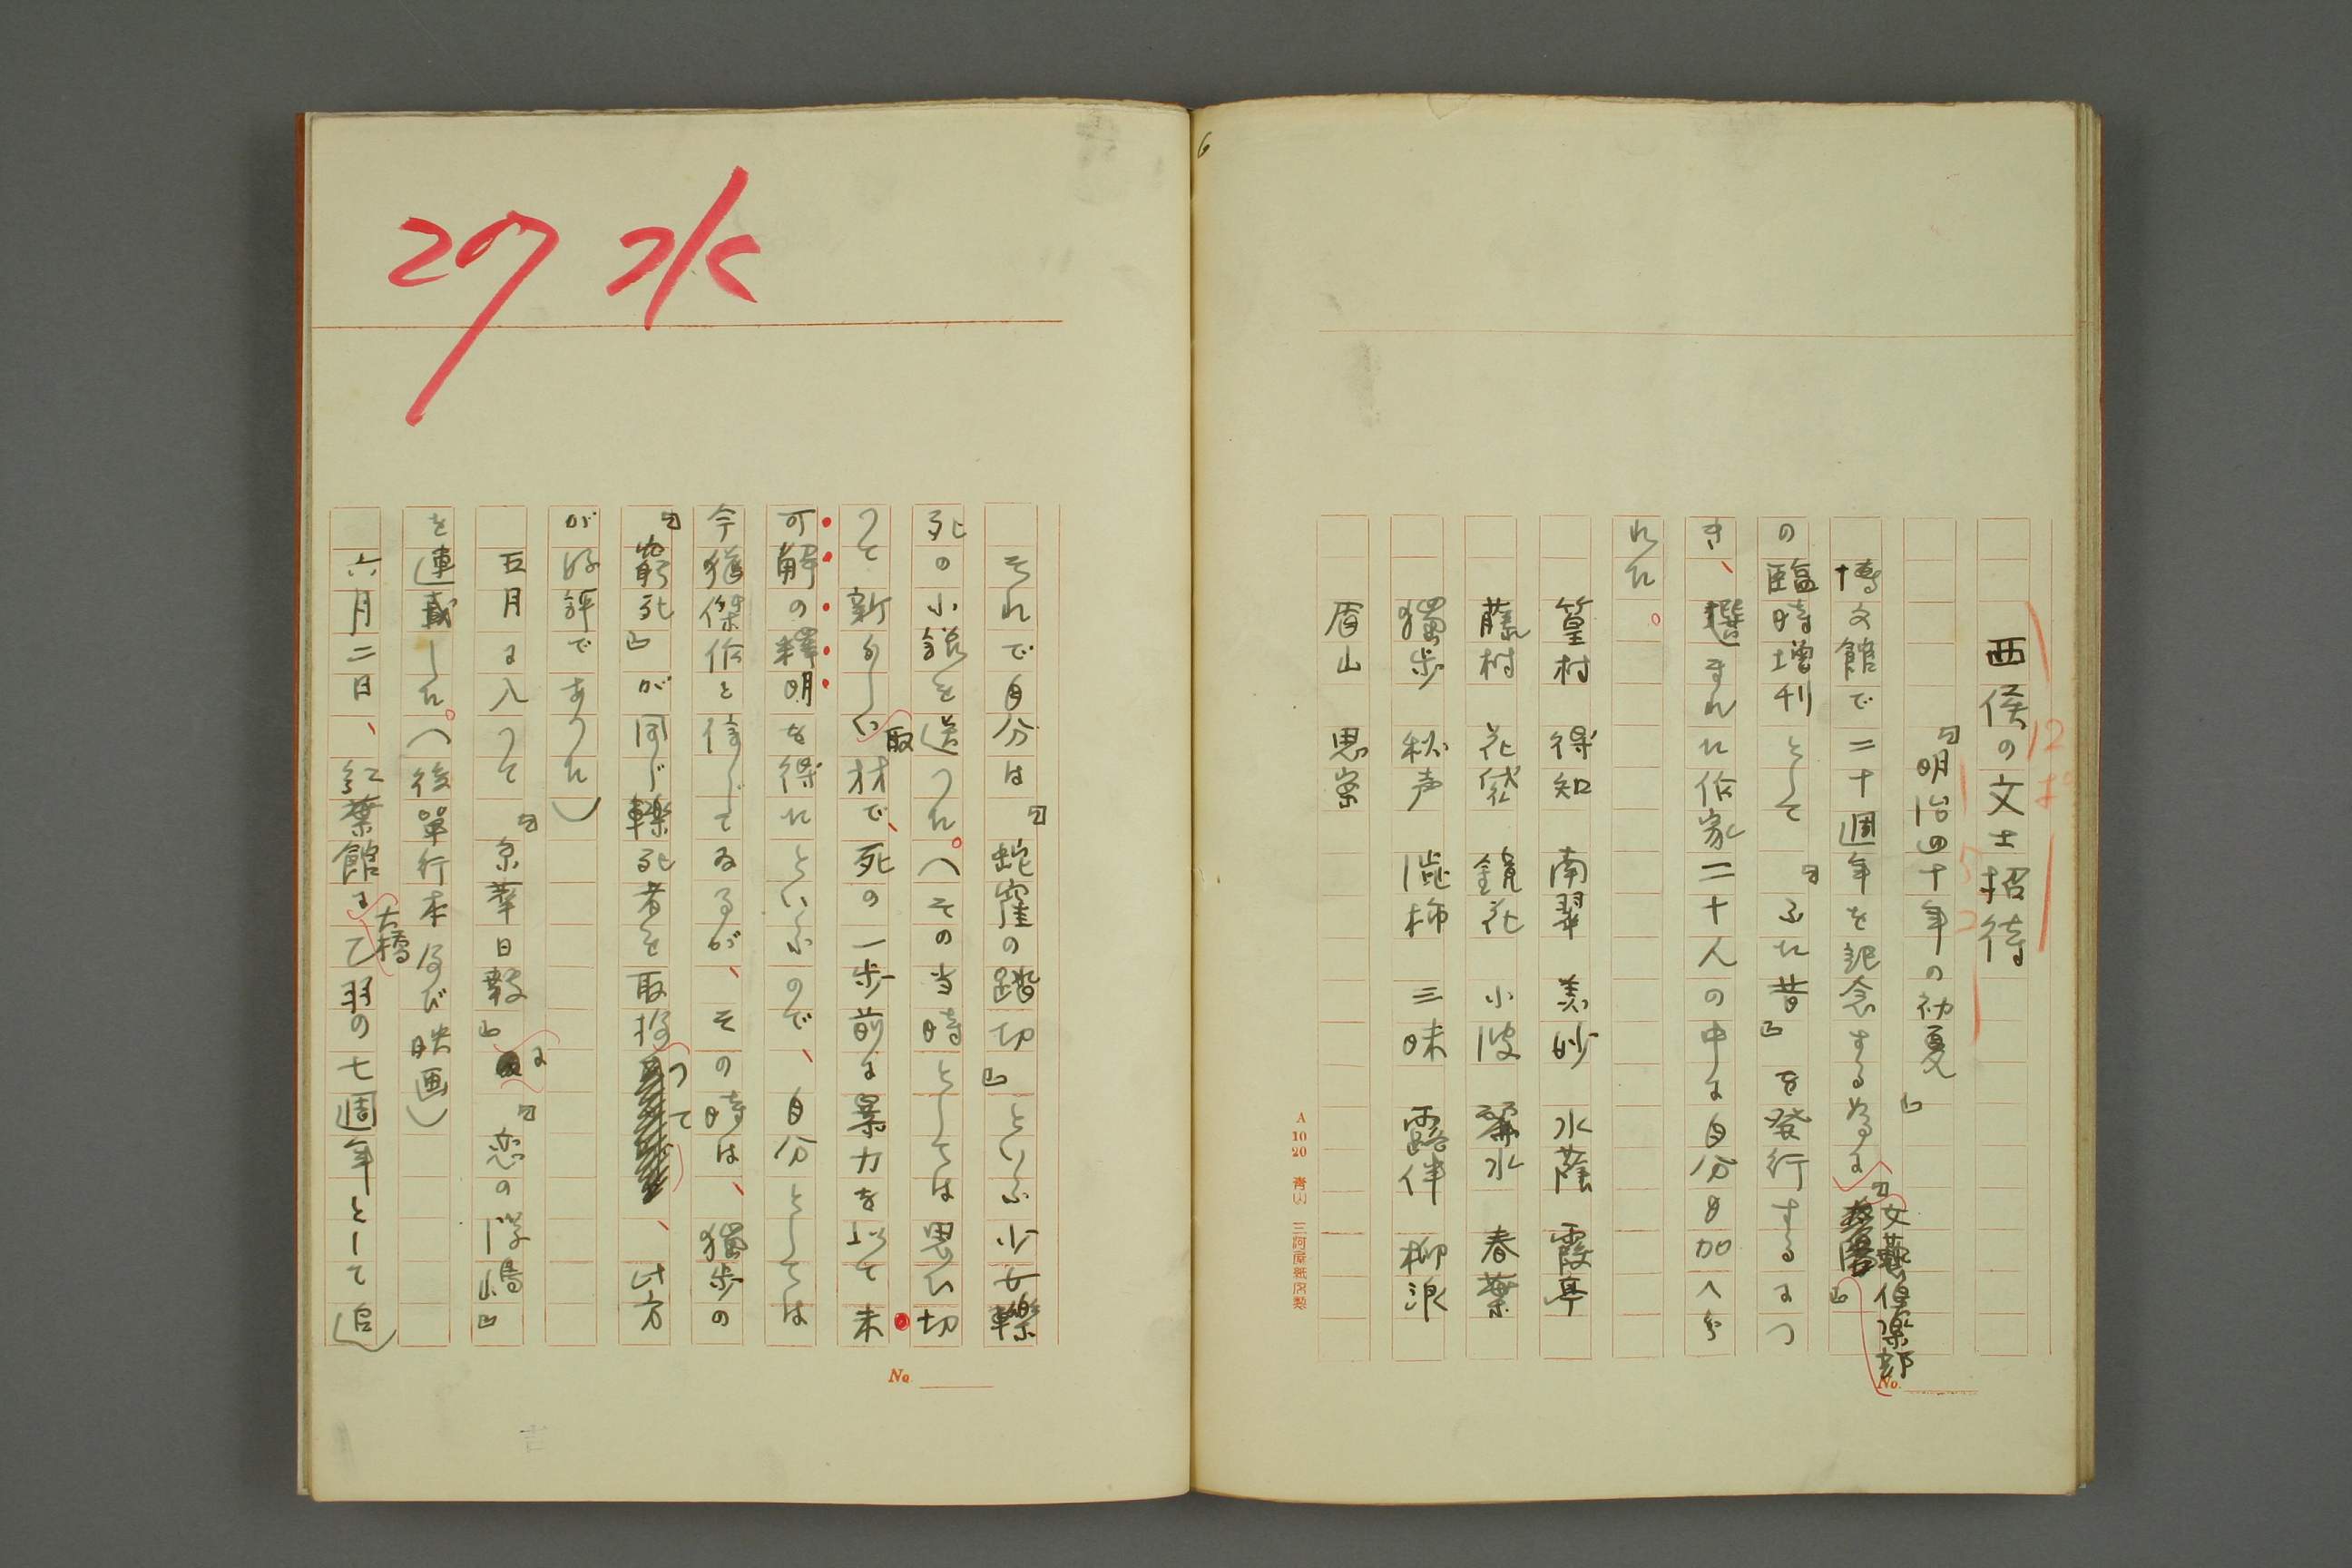 西侯の文士招待
『明治四十年の初夏』
博文館で二十週年を記念するために『文藝倶楽部』
の臨時増刊として『ふた昔』を発行するにつ
き、選まれた作家二十人の中に自分も加へら
れた。
篁村　得知　南翠　美妙　水蔭　霞亭
藤村　花袋　鏡花　小波　麗水　春葉
獨歩　秋声　澁柿　三昧　露伴　柳浪
眉山　思案
12ポ
No.
A 10 20 青(ハ) 三河屋紙店製
6
27 水
それで自分は『蛇窪の踏切』といふ少女轢
死の小説を送つた。（その当時としては思ひ切
つて新らしい取材で、死の一歩前に暴力を以て未
可解の釋明を得たといふので、自分としては
今猶傑作と信じてゐるが、その時は、獨歩の
『窮死』が同じ轢死者を取扱つて、此方
が好評であつた）
五月に入つて『京華日報』に『恋の浮嶋』
を連載した。（後單行本及び映画）
六月二日、紅葉館に大橋乙羽の七週年として追
No.